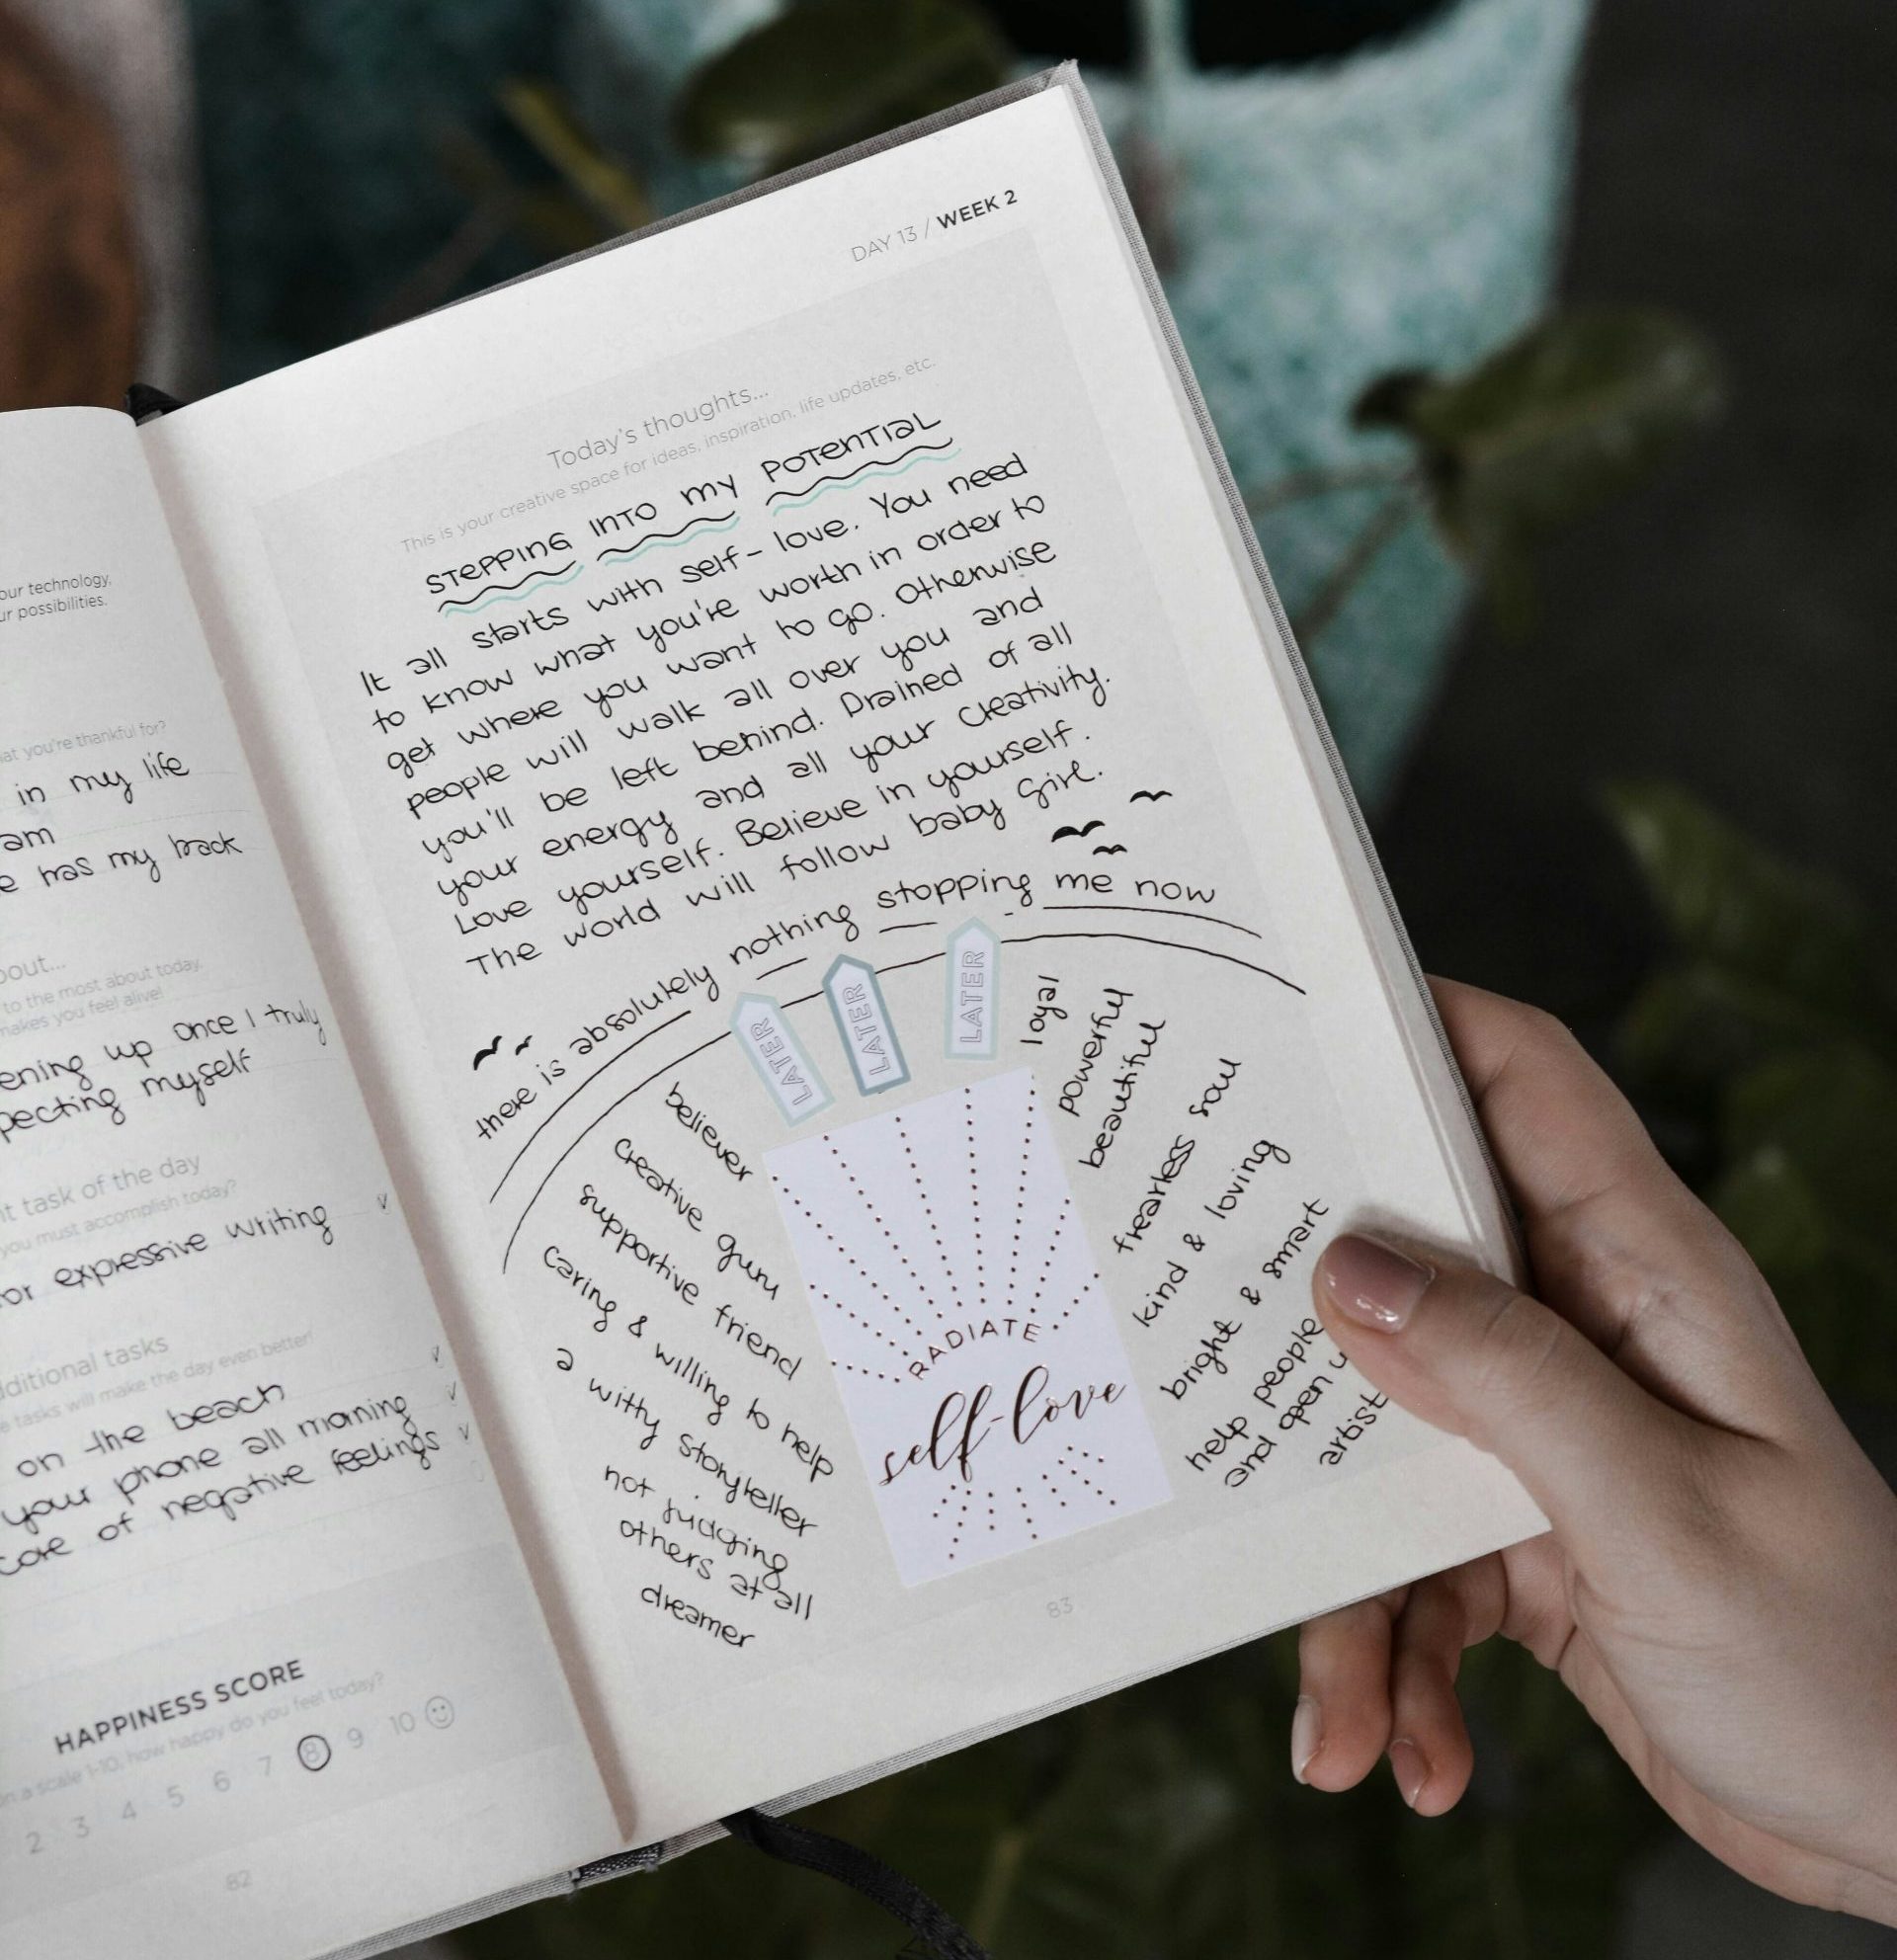 our technology,
ur possibilities.
at you're thankful for?
in my life
am
e has my back
bout...
to the most about today.
makes you feel alive!
ening up once I truly
pecting myself
nt task of the day
you must accomplish today?
or expressive writing
dditional tasks
e tasks will make the day even better!
on the beach
your phone all morning
core of negative feelings
HAPPINESS SCORE
on a scale 1-10, how happy do you feel today?
2 3 4 5 6 7 8 9 10
82
DAY 13 / WEEK 2
Today's thoughts...
This is your creative space for ideas, inspiration, life updates, etc.
STEPPING INTO MY POTENTIAL
It all starts with self-love. You need
to know what you're worth in order to
get where you want to go. Otherwise
people will walk all over you and
you'll be left behind. Drained of all
your energy and all your creativity.
Love yourself. Believe in yourself.
The world will follow baby girl.
there is absolutely nothing stopping me now
LATER
LATER
LATER
believer
creative guru
supportive friend
caring & willing to help
a witty storyteller
not judging
others at all
dreamer
RADIATE
self-love
loyal
powerful
beautiful
fearless soul
kind & loving
bright & smart
help people
and open u
artist
83